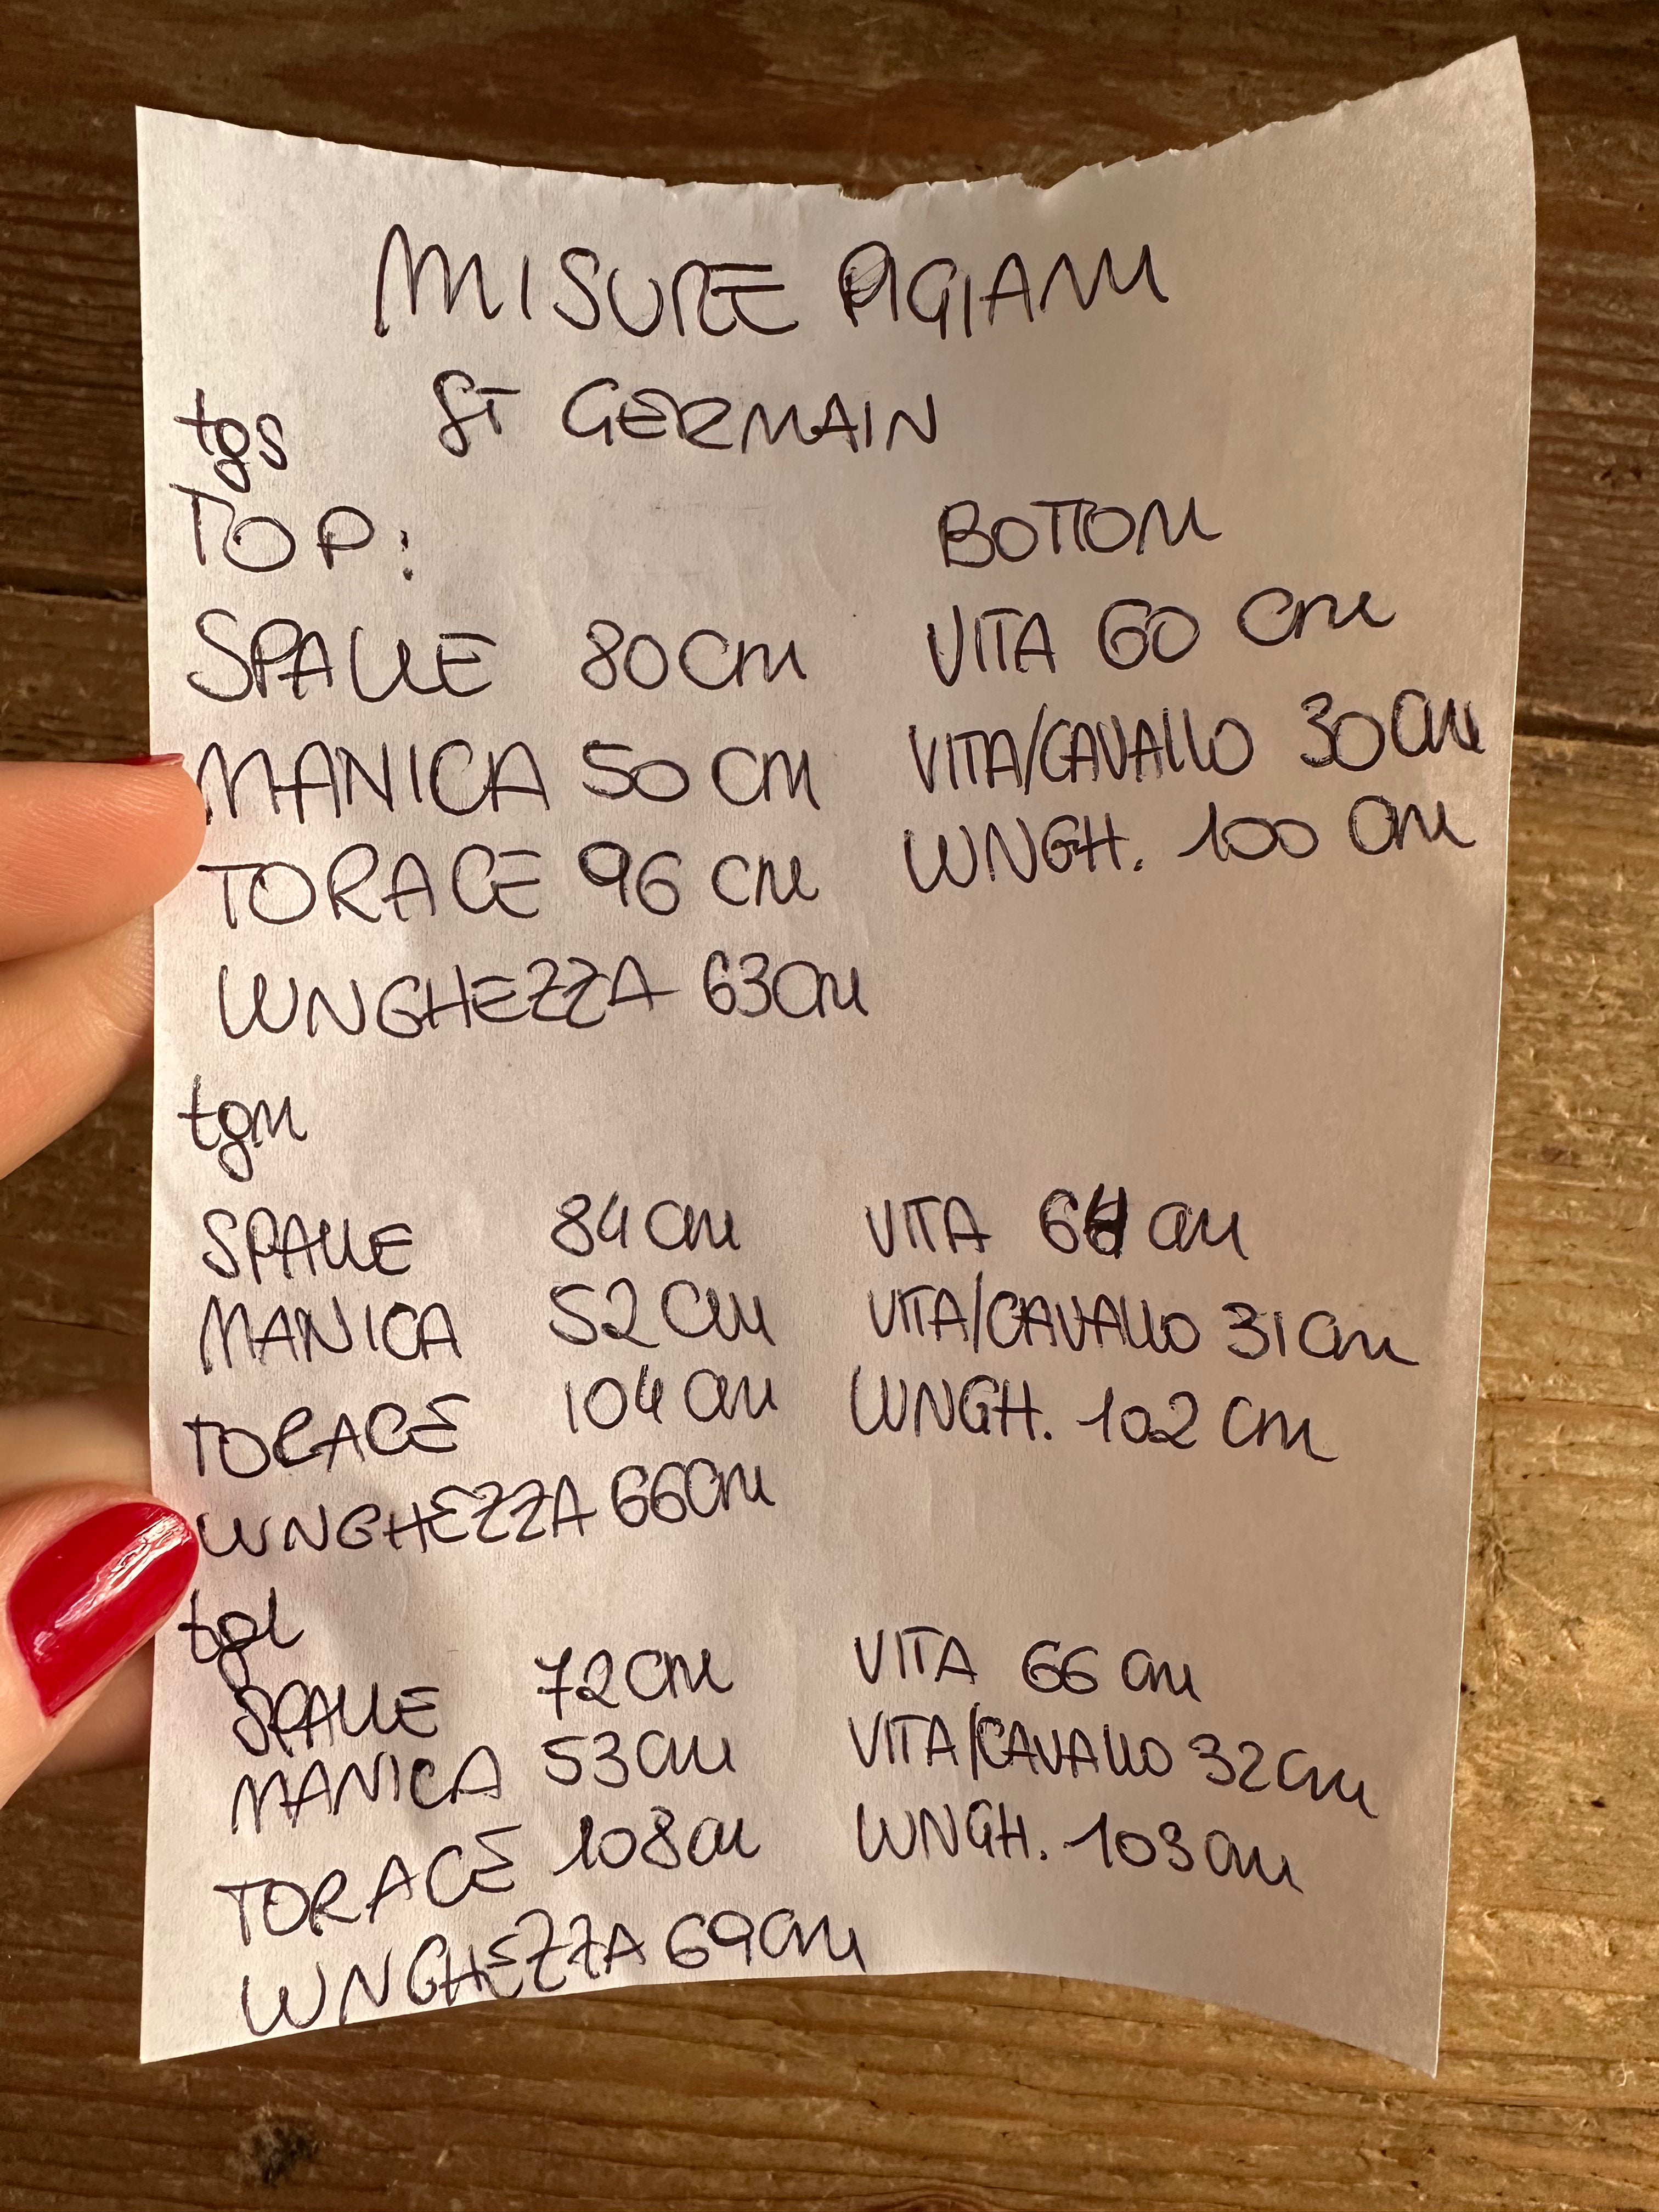 MISURE PIGIAMI
tgs ST GERMAIN
TOP: BOTTOM
SPALLE 80 cm VITA 60 cm
MANICA 50 cm VITA/CAVALLO 30 cm
TORACE 96 cm LUNGH. 100 cm
LUNGHEZZA 63 cm
tgM
SPALLE 84 cm VITA 64 cm
MANICA 52 cm VITA/CAVALLO 31 cm
TORACE 104 cm LUNGH. 102 cm
LUNGHEZZA 66 cm
tgL
SPALLE 72 cm VITA 66 cm
MANICA 53 cm VITA/CAVALLO 32 cm
TORACE 108 cm LUNGH. 103 cm
LUNGHEZZA 69 cm